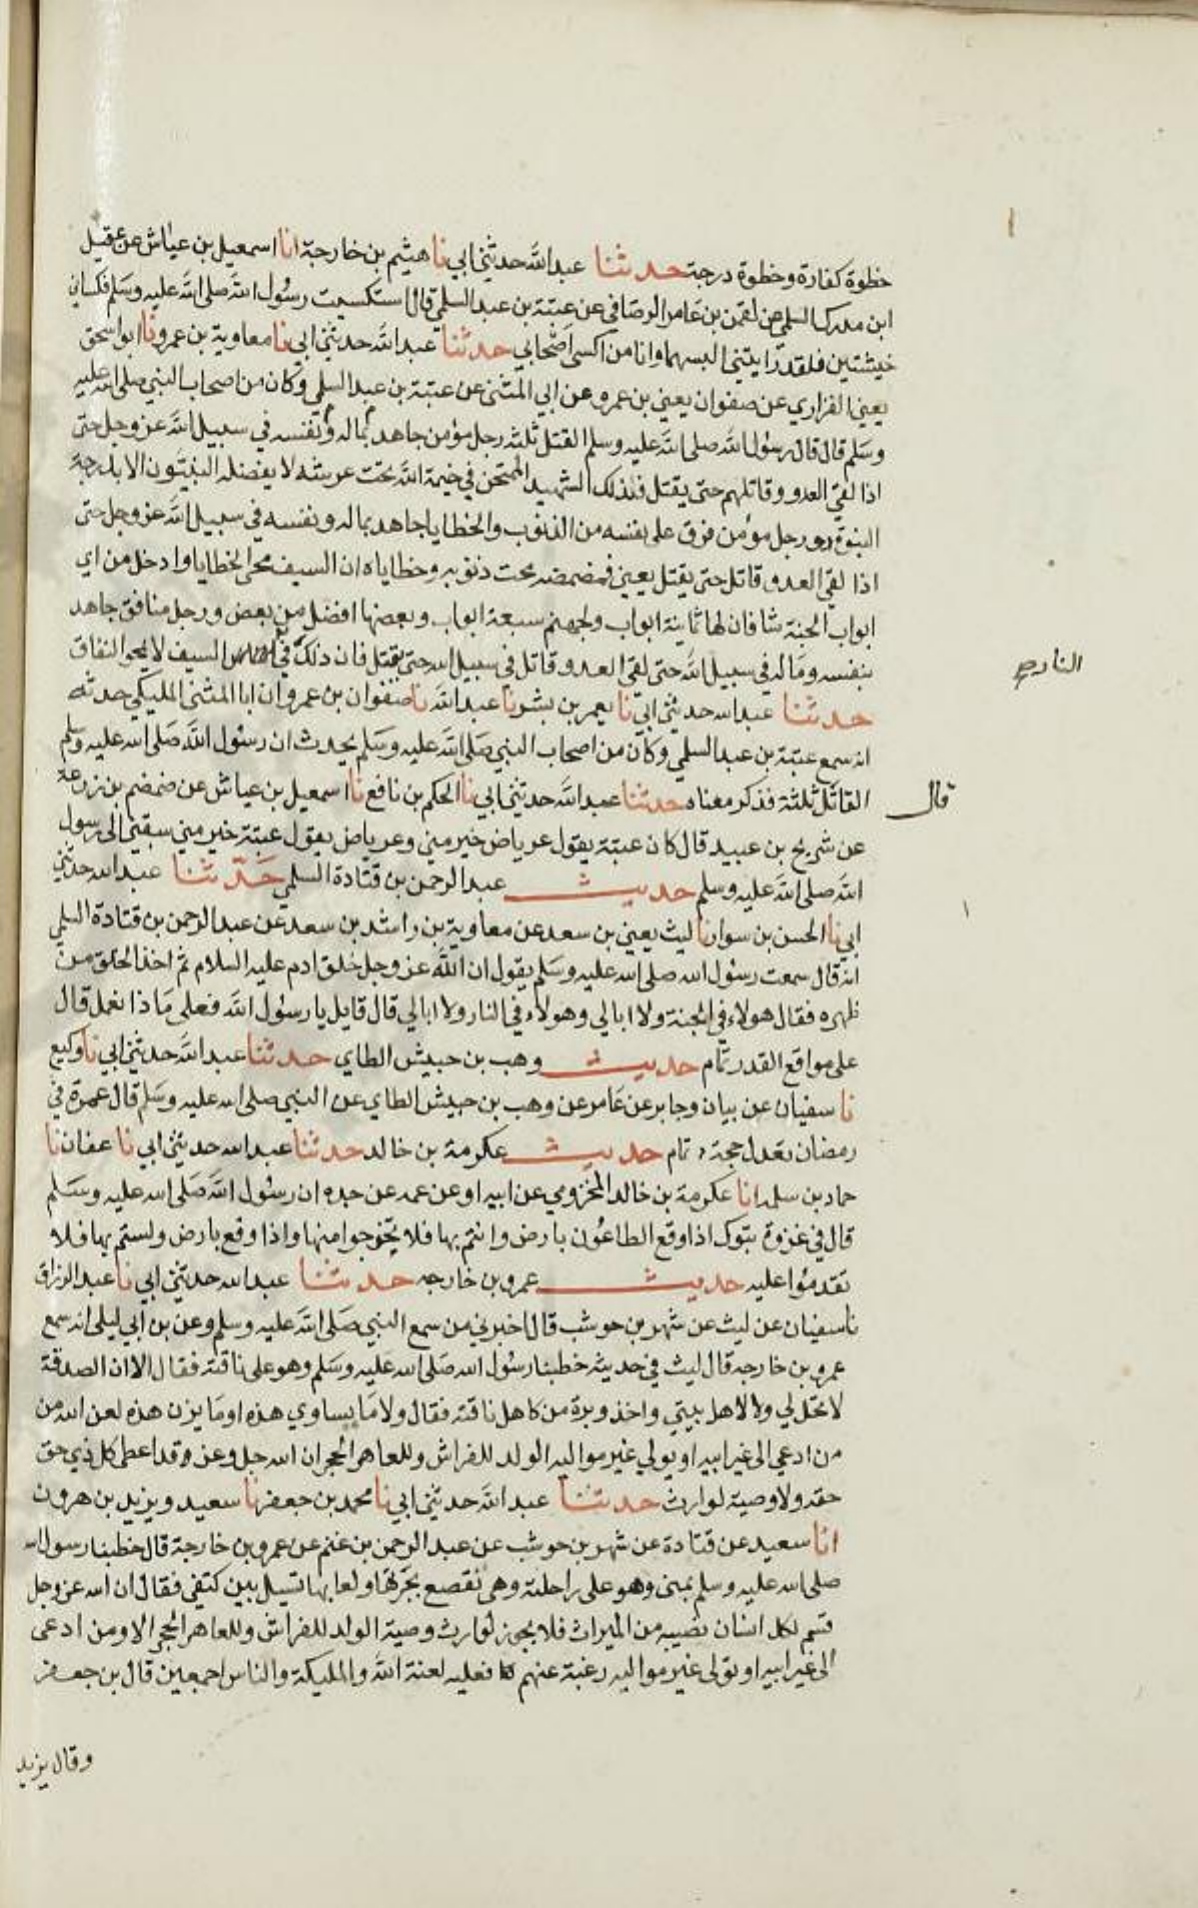 خطوة كفارة وخطوة درجة حدثنا عبدالله حدثني ابي نا هيثم بن خارجة انا اسمعيل بن عياش عن عقيل
ابن مدرك السلمي عن لقمن بن عامر الوصافي عن عتبة بن عبد السلمي قال استكسيت رسول الله صلى الله عليه وسلم فكساني
خيشتين فلقد رايتني البسهما وانا من اكسى اصحابي حدثنا عبدالله حدثني ابي نا معاوية بن عمرو نا ابو اسحق
يعني الفزاري عن صفوان يعني بن عمرو عن ابي المثنى عن عتبة بن عبد السلمي وكان من اصحاب النبي صلى الله عليه
وسلم قال قال رسول الله صلى الله عليه وسلم القتل ثلثه رجل مؤمن جاهد بماله ونفسه في سبيل الله عز وجل حتى
اذا لقي العدو وقاتلهم حتى يقتل فذلك الشهيد الممتحن في خيمة الله تحت عرشه لا يفضله النبيون الا بدرجة
النبوة ورجل مؤمن فرق على نفسه من الذنوب والخطايا جاهد بماله ونفسه في سبيل الله عز وجل حتى
اذا لقي العدو قاتل حتى يقتل يعني فمضمضه محت ذنوبه وخطاياه ان السيف محى الخطايا وادخل من اي
ابواب الجنة شا فان لها ثمانية ابواب ولجهنم سبعة ابواب وبعضها افضل من بعض ورجل منافق جاهد
بنفسه وماله في سبيل الله حتى لقي العدو قاتل في سبيل الله حتى يقتل فان ذلك في السيف لا يمحو النفاق
النار صح
حدثنا عبدالله حدثني ابي نا يعمر بن بشر نا عبدالله نا صفوان بن عمرو ان ابا المثنى المليكي حدثه
انه سمع عتبة بن عبد السلمي وكان من اصحاب النبي صلى الله عليه وسلم يحدث ان رسول الله صلى الله عليه وسلم
قال
القاتل ثلثة فذكر معناه حدثنا عبدالله حدثني ابي نا الحكم بن نافع نا اسمعيل بن عياش عن ضمضم بن زرعة
عن شريح بن عبيد قال كان عتبة يقول عرباض خير مني وعرباض يقول عتبة خير مني سبقني الى رسول
الله صلى الله عليه وسلم حديث عبد الرحمن بن قتادة السلمي حدثنا عبدالله حدثني
ابي نا الحسن بن سوار نا ليث يعني بن سعد عن معاوية بن راشد بن سعد عن عبد الرحمن بن قتادة السلمي
انه قال سمعت رسول الله صلى الله عليه وسلم يقول ان الله عز وجل خلق ادم عليه السلام ثم اخذ الخلق من
ظهره فقال هولاء في الجنة ولا ابالي وهولاء في النار ولا ابالي قال قايل يا رسول الله فعلى ماذا نعمل قال
على مواقع القدر تمام حديث وهب بن حبيش الطاي حدثنا عبدالله حدثني ابي نا وكيع
نا سفيان عن بيان وجابر عن عامر عن وهب بن حبيش الطاي عن النبي صلى الله عليه وسلم قال عمرة في
رمضان تعدل حجة تمام حديث عكرمة بن خالد حدثنا عبدالله حدثني ابي نا عفان نا
حماد بن سلمه انا عكرمة بن خالد المخزومي عن ابيه او عن عمه عن جده ان رسول الله صلى الله عليه وسلم
قال في غزوة تبوك اذا وقع الطاعون بارض وانتم بها فلا تخرجوا منها واذا وقع بارض ولستم بها فلا
تقدموا عليه حديث عمرو بن خارجه حدثنا عبدالله حدثني ابي نا عبد الرزاق
نا سفيان عن ليث عن شهر بن حوشب قال اخبرني من سمع النبي صلى الله عليه وسلم وعن بن ابي ليلى انه سمع
عمرو بن خارجه قال ليث في حديثه خطبنا رسول الله صلى الله عليه وسلم وهو على ناقته فقال الا ان الصدقة
لا تحل لي ولا لاهل بيتي واخذ وبرة من كاهل ناقته فقال ولا ما يساوي هذه او ما يزن هذه لعن الله من
من ادعى الى غير ابيه او تولى غير مواليه الولد للفراش وللعاهر الحجر ان الله جل وعز وقد اعطى كل ذي حق
حقه ولا وصية لوارث حدثنا عبدالله حدثني ابي نا محمد بن جعفر نا سعيد ويزيد بن هرون
انا سعيد عن قتادة عن شهر بن حوشب عن عبد الرحمن بن غنم عن عمرو بن خارجة قال خطبنا رسول الله
صلى الله عليه وسلم بمنى وهو على راحلته وهي تقصع بجرتها ولعابها تسيل بين كتفي فقال ان الله عز وجل
قسم لكل انسان نصيبه من الميراث فلا يجوز لوارث وصية الولد للفراش وللعاهر الحجر الا ومن ادعى
الى غير ابيه او تولى غير مواليه رغبة عنهم فعليه لعنة الله والمليكة والناس اجمعين قال بن جعفر
وقال يزيد